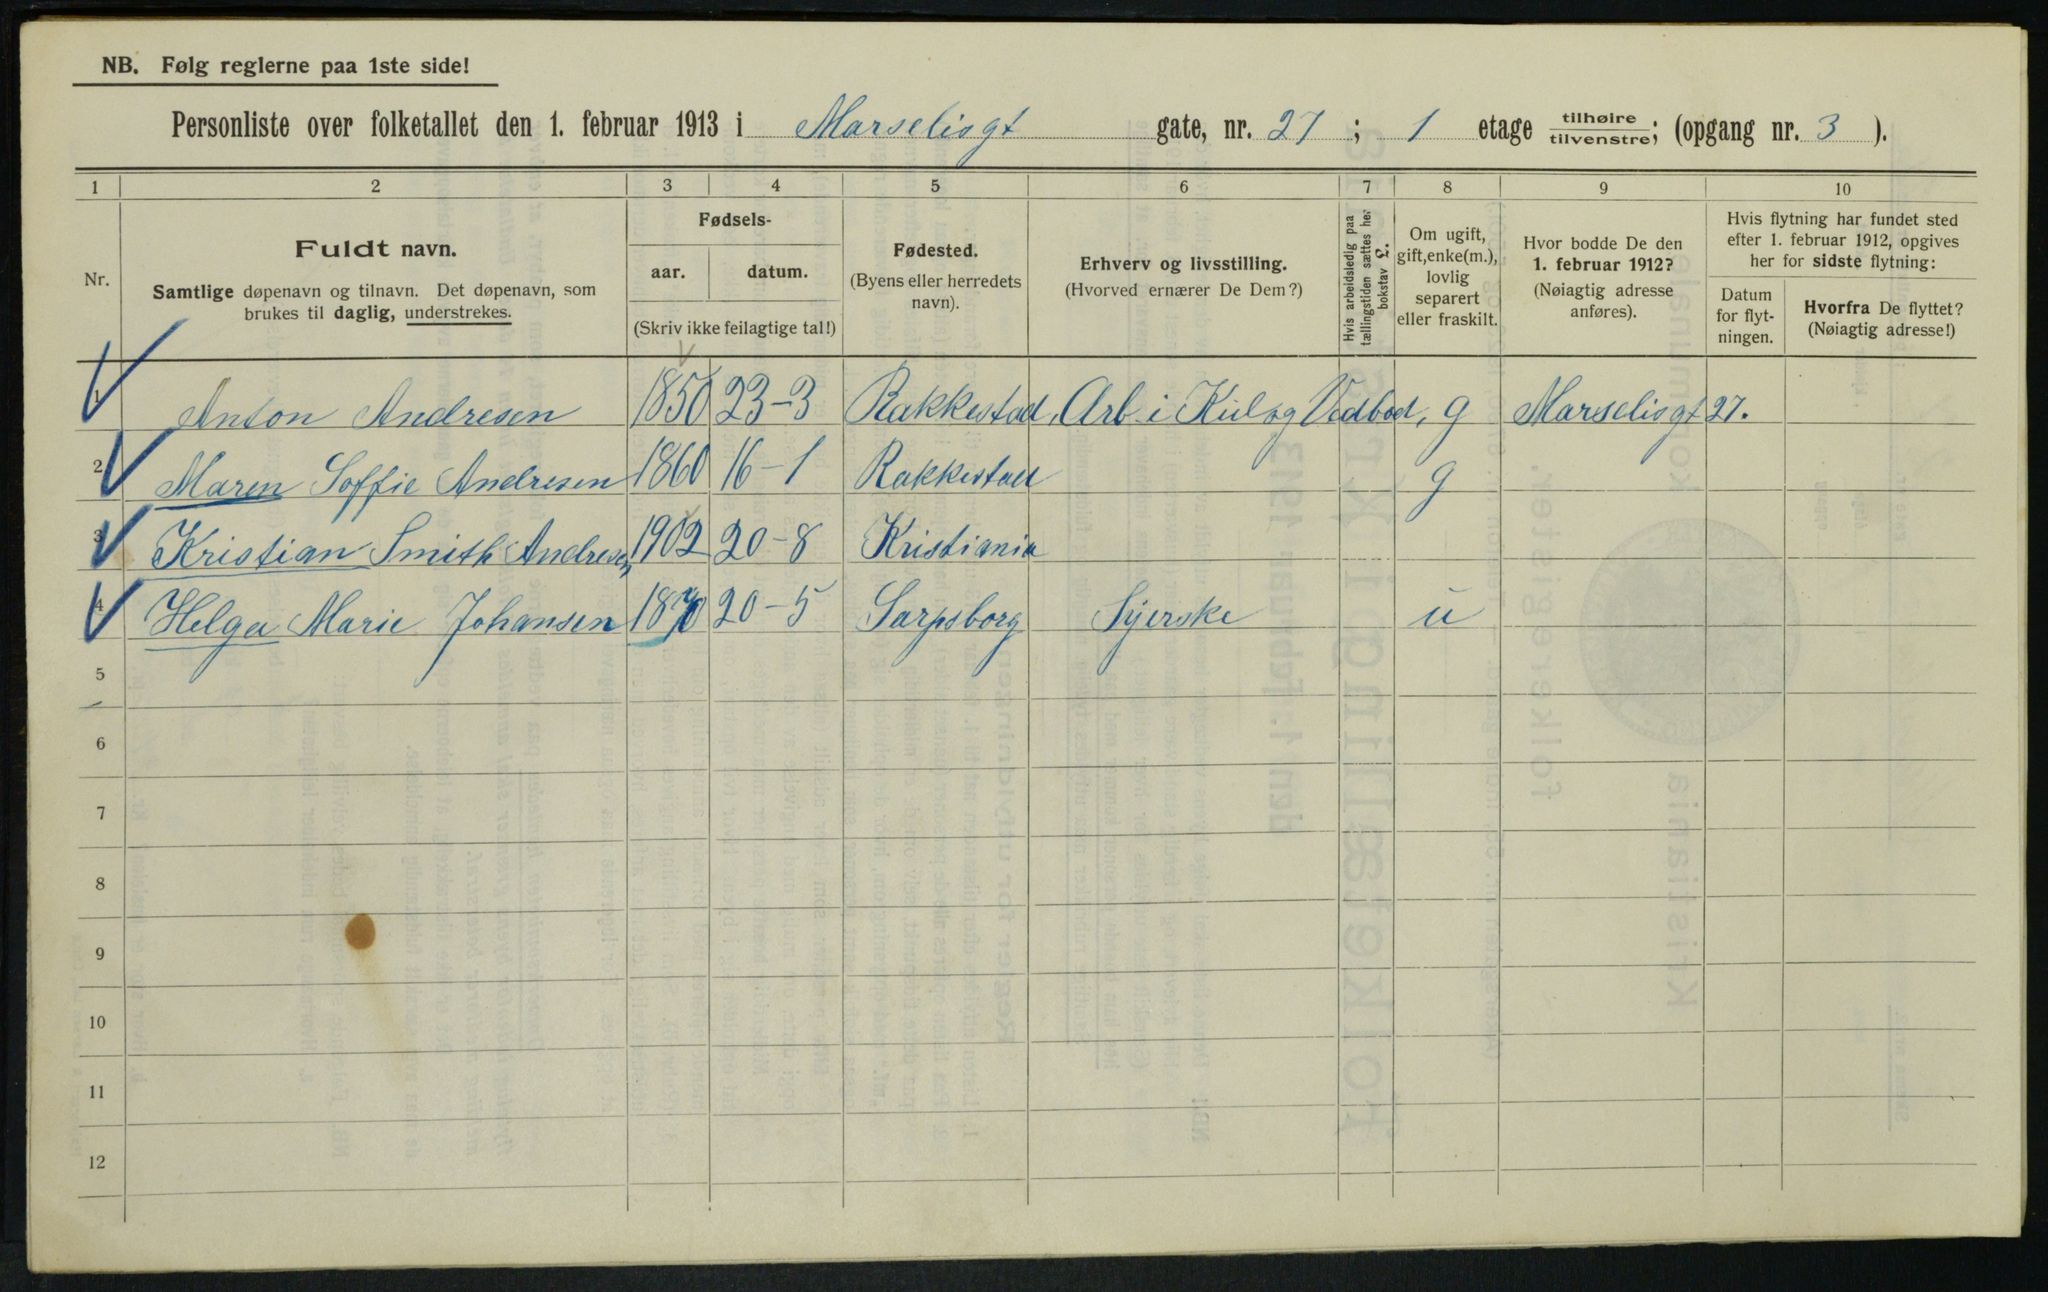 NB. Følg reglerne paa 1ste side!
Personliste over folketallet den 1. februar 1913 i Marselisgt gate, nr. 27; 1 etage tilhøire/tilvenstre; (opgang nr. 3).
1 2 3 4 5 6 7 8 9 10
Nr.
Fuldt navn.
Samtlige døpenavn og tilnavn. Det døpenavn, som
brukes til daglig, understrekes.
Fødsels-
aar. datum.
(Skriv ikke feilagtige tal!)
Fødested.
(Byens eller herredets
navn).
Erhverv og livsstilling.
(Hvorved ernærer De Dem?)
Hvis arbeidsledig paa
tællingstiden sættes her
bokstav L.
Om ugift,
gift, enke(m.),
lovlig
separert
eller fraskilt.
Hvor bodde De den
1. februar 1912?
(Nøiagtig adresse
anføres).
Hvis flytning har fundet sted
efter 1. februar 1912, opgives
her for sidste flytning:
Datum
for flyt-
ningen.
Hvorfra De flyttet?
(Nøiagtig adresse!)
1 Anton Andresen 1850 23-3 Rakkestad, Arb. i Kul og Vedbod, g Marselisgt 27.
2 Maren Soffie Andresen 1860 16-1 Rakkestad g
3 Kristian Smith Andresen 1902 20-8 Kristiania
4 Helga Marie Johansen 20-5 Sarpsborg Syerske u
5
6
7
8
9
10
11
12